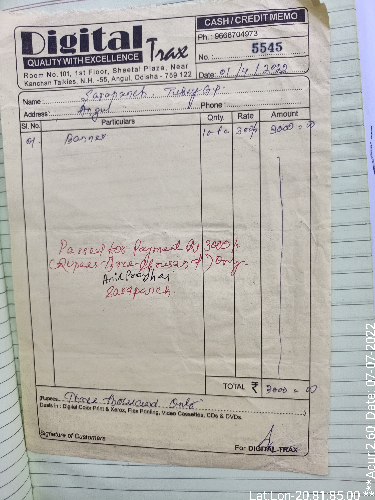 CASH / CREDIT MEMO
Digital Trax
QUALITY WITH EXCELLENCE
Room No.101, 1st Floor, Sheetal Plaza, Near
Kanchan Talkies, N.H. -55, Angul, Odisha - 759 122
Ph.: 9668704973
No.: 5545
Date: 01/4/2022
Name: Sarapanch
Address: Angul
Phone:
Sl. No. Particulars Qnty. Rate Amount
01 Banner 10 Pc 300/- 3000=00
Passed for Payment Rs 3000/-
(Rupees Three Thousand) Only
Sarapanch
TOTAL ₹ 3000=00
Rupees: Three thousand Only
Deals in : Digital Color Print & Xerox, Flex Printing, Video Cassettes, CDs & DVDs.
Signature of Customers
For DIGITAL TRAX